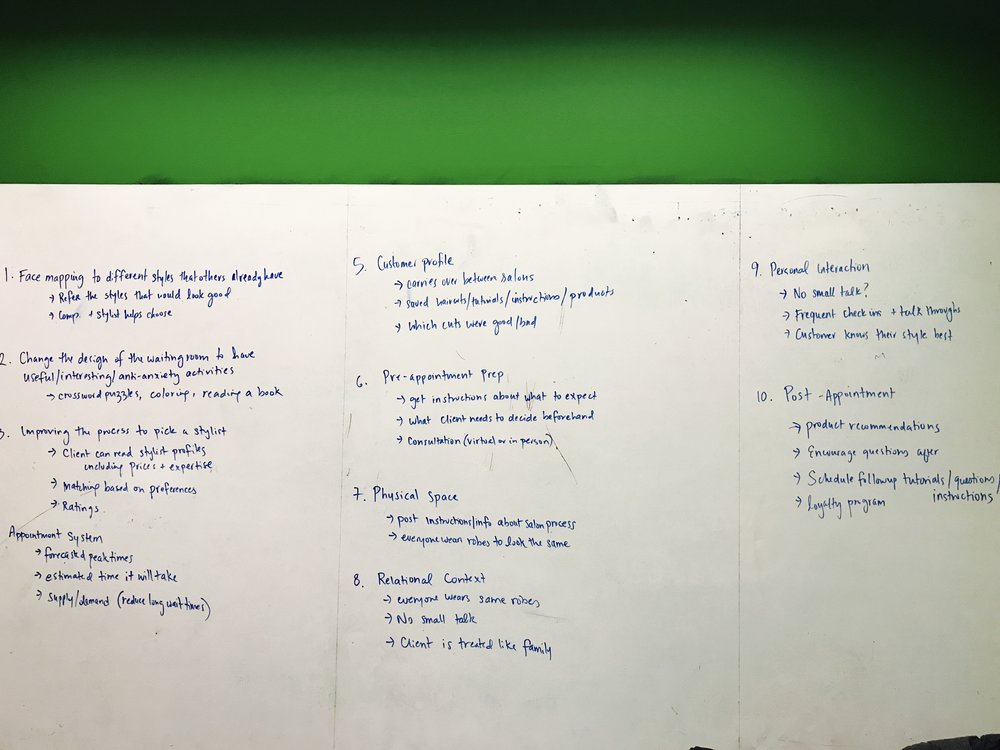 1. Face mapping to different styles that others already have
→ Refer the styles that would look good
→ Comp. + stylist helps choose
2. Change the design of the waiting room to have
useful/interesting/anti-anxiety activities
→ crossword puzzles, coloring, reading a book
3. Improving the process to pick a stylist
→ Client can read stylist profiles
including prices + expertise
→ Matching based on preferences
→ Ratings
Appointment System
→ forecasted peak times
→ estimated time it will take
→ supply/demand (reduce long wait times)
5. Customer profile
→ carries over between salons
→ saved haircuts/tutorials/instructions/products
→ which cuts were good/bad
6. Pre-appointment Prep
→ get instructions about what to expect
→ what client needs to decide beforehand
→ Consultation (virtual or in person)
7. Physical Space
→ post instructions/info about salon process
→ everyone wear robes to look the same
8. Relational Context
→ everyone wears same robes
→ No small talk
→ Client is treated like family
9. Personal Interaction
→ No small talk?
→ Frequent check ins + talk throughs
→ Customer knows their style best
10. Post-Appointment
→ product recommendations
→ Encourage questions after
→ Schedule followup tutorials/questions/
instructions
→ loyalty program